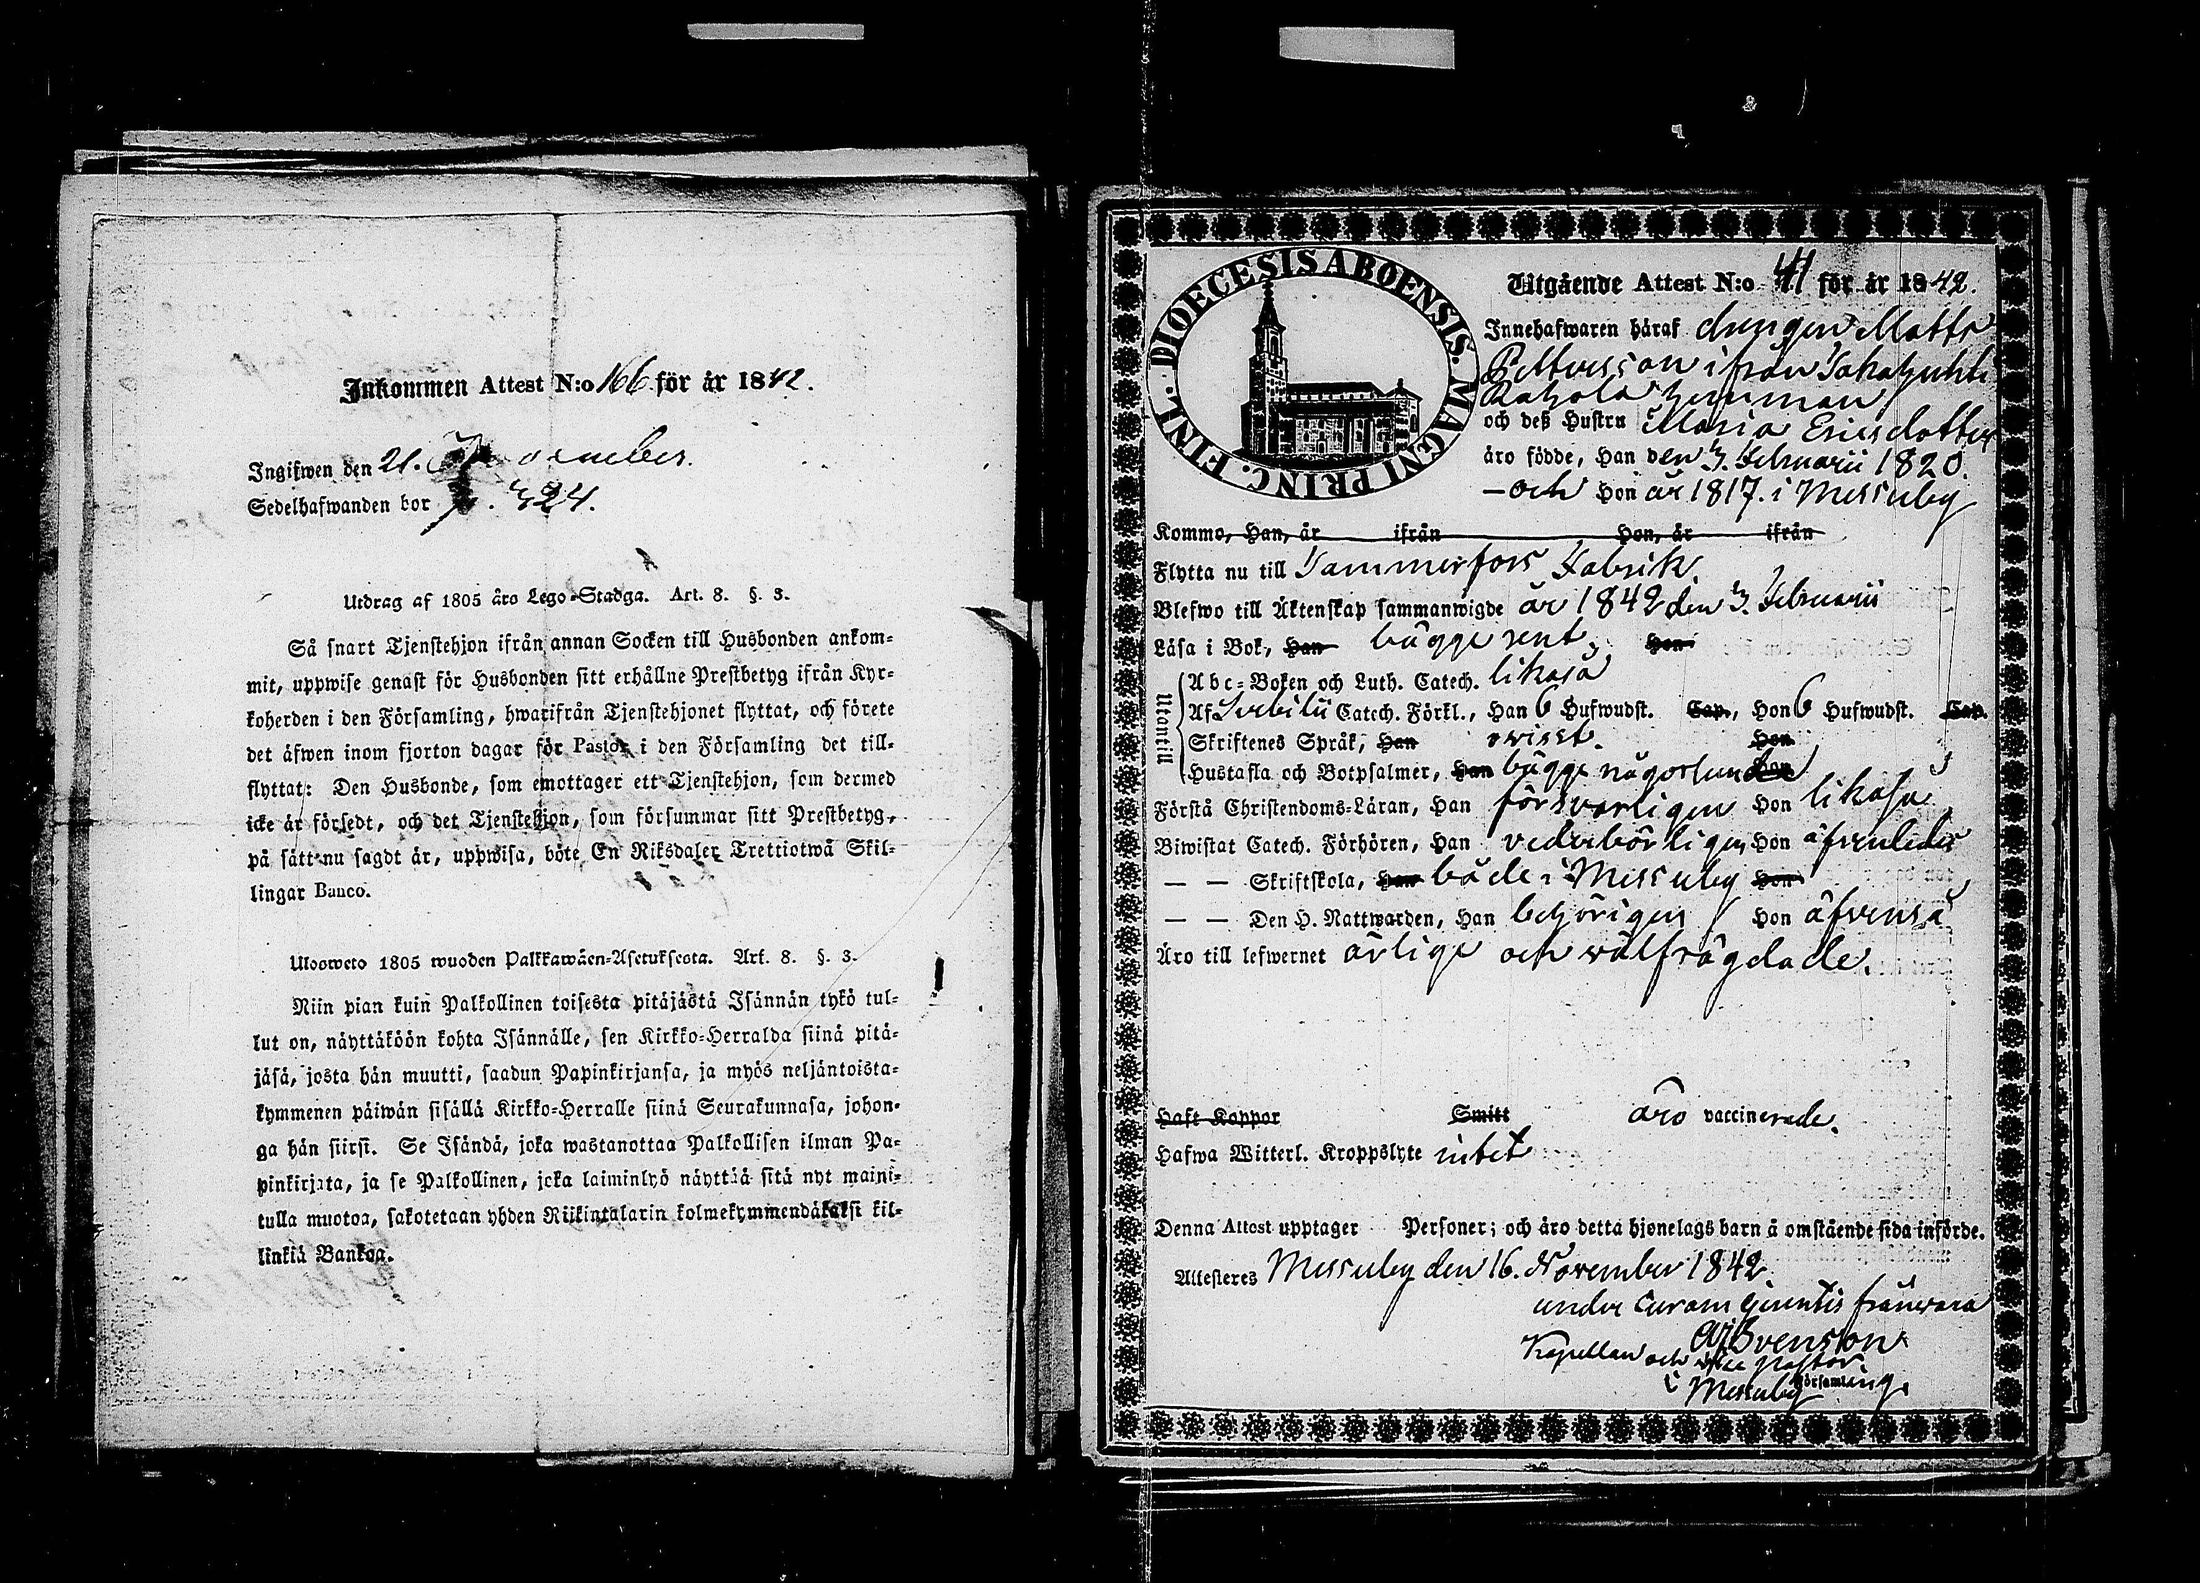 Inkommen Attest N:o 166 för år 1842.
Ingifwen den 21. November.
Sedelhafwanden bor p. 324.
Utdrag af 1805 års Lego-Stadga. Art. 8. §. 3.
Så snart Tjenstehjon ifrån annan Socken till Husbonden ankom=
mit, uppwise genast för Husbonden sitt erhållne Prestbetyg ifrån Kyr=
koherden i den Församling, hwarifrån Tjenstehjonet flyttat, och förete
det äfwen inom fjorton dagar för Pastor i den Församling det till=
flyttat: Den Husbonde, som emottager ett Tjenstehjon, som dermed
icke är försedt, och det Tjenstehjon, som försummar sitt Prestbetyg,
på sätt nu sagdt är, uppwisa, böte En Riksdaler Trettiotwå Skil=
lingar Banco.
Ulosweto 1805 wuoden Palkkawäen=Asetuksesta. Art. 8. §. 3.
Niin pian kuin Palkollinen toisesta pitäjästä Isännän tykö tul=
lut on, näyttäköön kohta Isännälle, sen Kirkko=Herralda siinä pitä=
jäsä, josta hän muutti, saadun Papinkirjansa, ja myös neljäntoista=
kymmenen päiwän sisällä Kirkko=Herralle siinä Seurakunnasa, johon=
ga hän siirsi. Se Isändä, joka wastanottaa Palkollisen ilman Pa=
pinkirjata, ja se Palkollinen, joka laiminlyö näyttää sitä nyt maini=
tulla muotoa, sakotetaan yhden Riikintalarin kolmekymmendäkaksi kil=
linkiä Bankoa.
DIOECESIS ABOENSIS. MAGNI PRINC. FINL.
Utgående Attest N:o 41 för år 1842.
Innehafwaren häraf drengen Matts
Pettersson ifrån Takahuhti
Rahola hemman
och deß Hustru Maria Ericsdotter
äro födde, Han den 3. Februarii 1820.
— och Hon år 1817. i Messuby
Kommo, Han, år ifrån Hon, år ifrån
Flytta nu till Tammerfors Fabrik.
Blefwo till Äktenskap sammanwigde år 1842 den 3. Februarii
Läsa i Bok, Han bägge rent, Hon
Utantill
Abc=Boken och Luth. Catech. likaså
Af Svebilii Catech. Förkl., Han 6 Hufwudst. Cap., Hon 6 Hufwudst. Cap.
Skriftenes Språk, Han ovisst. Hon
Hustafla och Botpsalmer, Han bägge någorlunda Hon
Förstå Christendoms=Läran, Han försvarligen Hon likaså
Biwistat Catech. Förhören, Han vederbörligen Hon äfvenledes
— — Skriftskola, Han både i Messuby Hon
— — Den H. Nattwarden, Han behörigen Hon äfvenså
Äro till lefwernet ärlige och välfrägdade.
Haft Koppor Smitt äro vaccinerade.
Hafwa Witterl. Kroppslyte intet
Denna Attest upptager Personer; och äro detta hjonelags barn å omstående sida införde.
Attesteres Messuby den 16. November 1842.
under Curam Gerentis frånvaro
Svenson
Kapellan och vice pastor
i Messuby Församling.